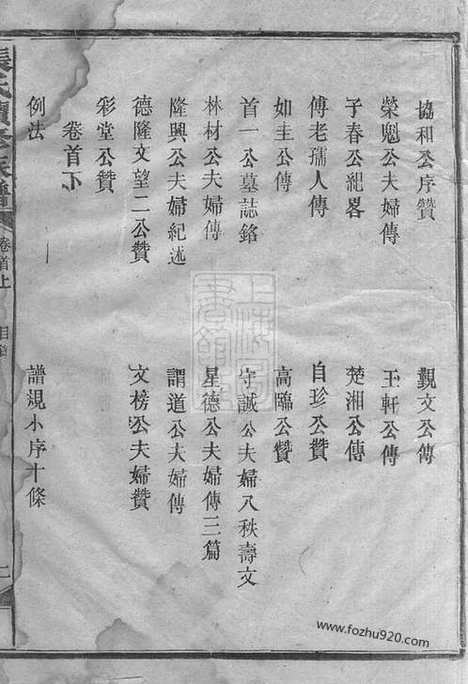 協和公序贊
觀文公傳
榮魁公夫婦傳
玉軒公傳
子春公紀畧
楚湘公傳
傅老孺人傳
自珍公贊
如圭公傳
高臨公贊
首一公墓誌銘
守誠公夫婦八秩壽文
林材公夫婦傳
星德公夫婦傳三篇
隆興公夫婦紀述
謂道公夫婦傳
德隆文望二公贊
文榜公夫婦贊
彩堂公贊
卷首下
例法
譜規小序十條
張氏續修族譜
卷首上
目錄
二
www.fozhu920.com